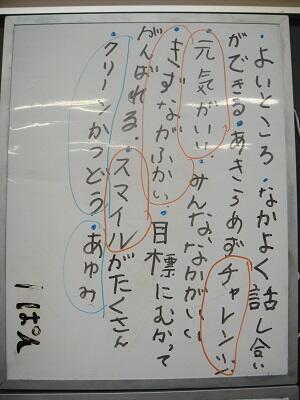 ・よいところ・なかよく話し合い
ができる・あきらめずチャレンジ
・元気がいい・みんな、なかがいい
・きずながふかい・目標にむかって
がんばれる・スマイルがたくさん
・クリーンかつどう・あゆみ
1ぱん